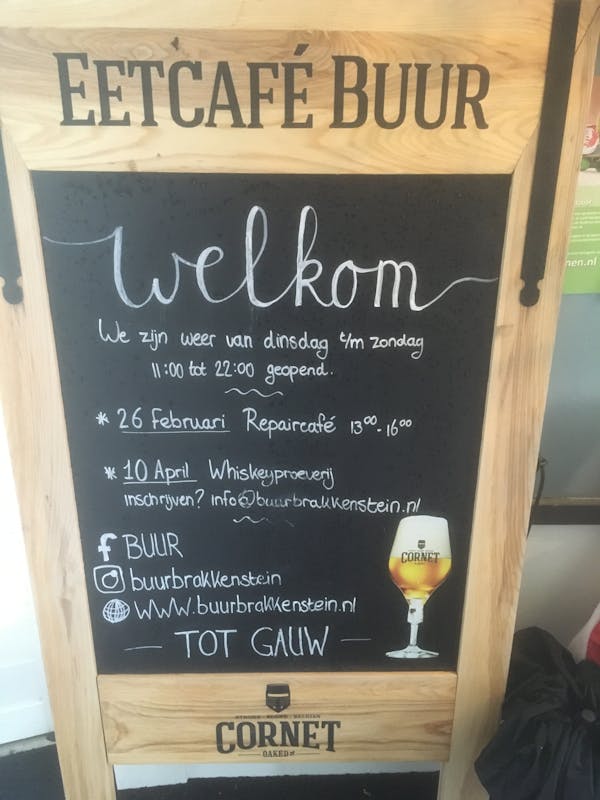 EETCAFÉ BUUR
welkom
We zijn weer van dinsdag t/m zondag
11:00 tot 22:00 geopend.
* 26 Februari Repaircafé 13⁰⁰-16⁰⁰
* 10 April Whiskeyproeverij
inschrijven? info@buurbrakkenstein.nl
f BUUR
buurbrakkenstein
www.buurbrakkenstein.nl
— TOT GAUW —
CORNET
STRONG BLOND BELGIAN
CORNET
OAKED
nen.nl